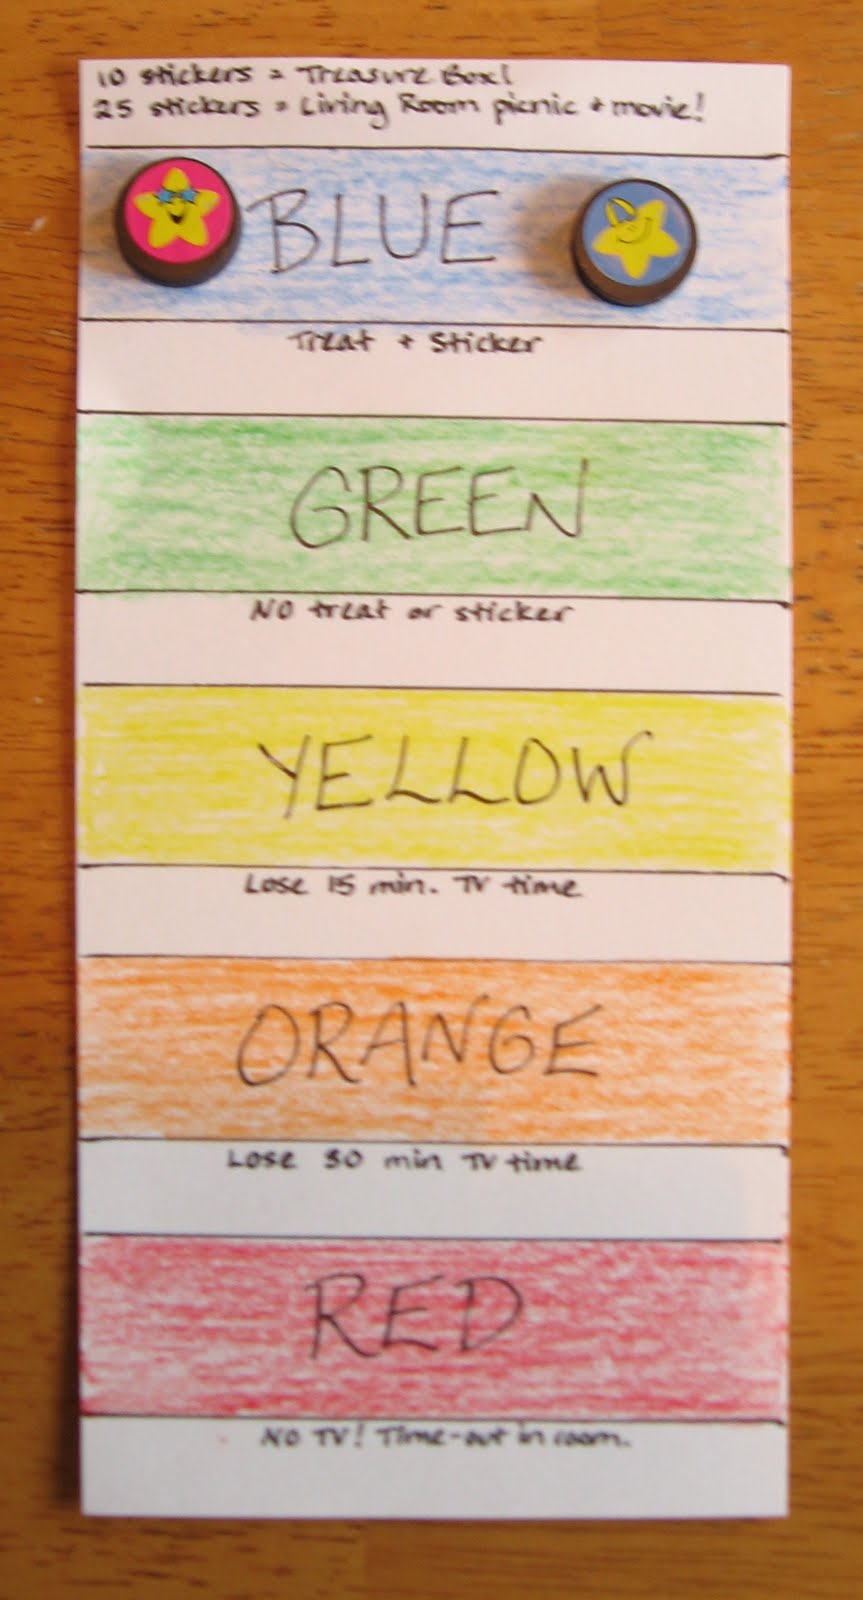 10 stickers = Treasure Box!
25 stickers = Living Room picnic + movie!
BLUE
Treat + Sticker
GREEN
No treat or sticker
YELLOW
Lose 15 min. TV time
ORANGE
Lose 30 min TV time
RED
No TV! Time-out in room.